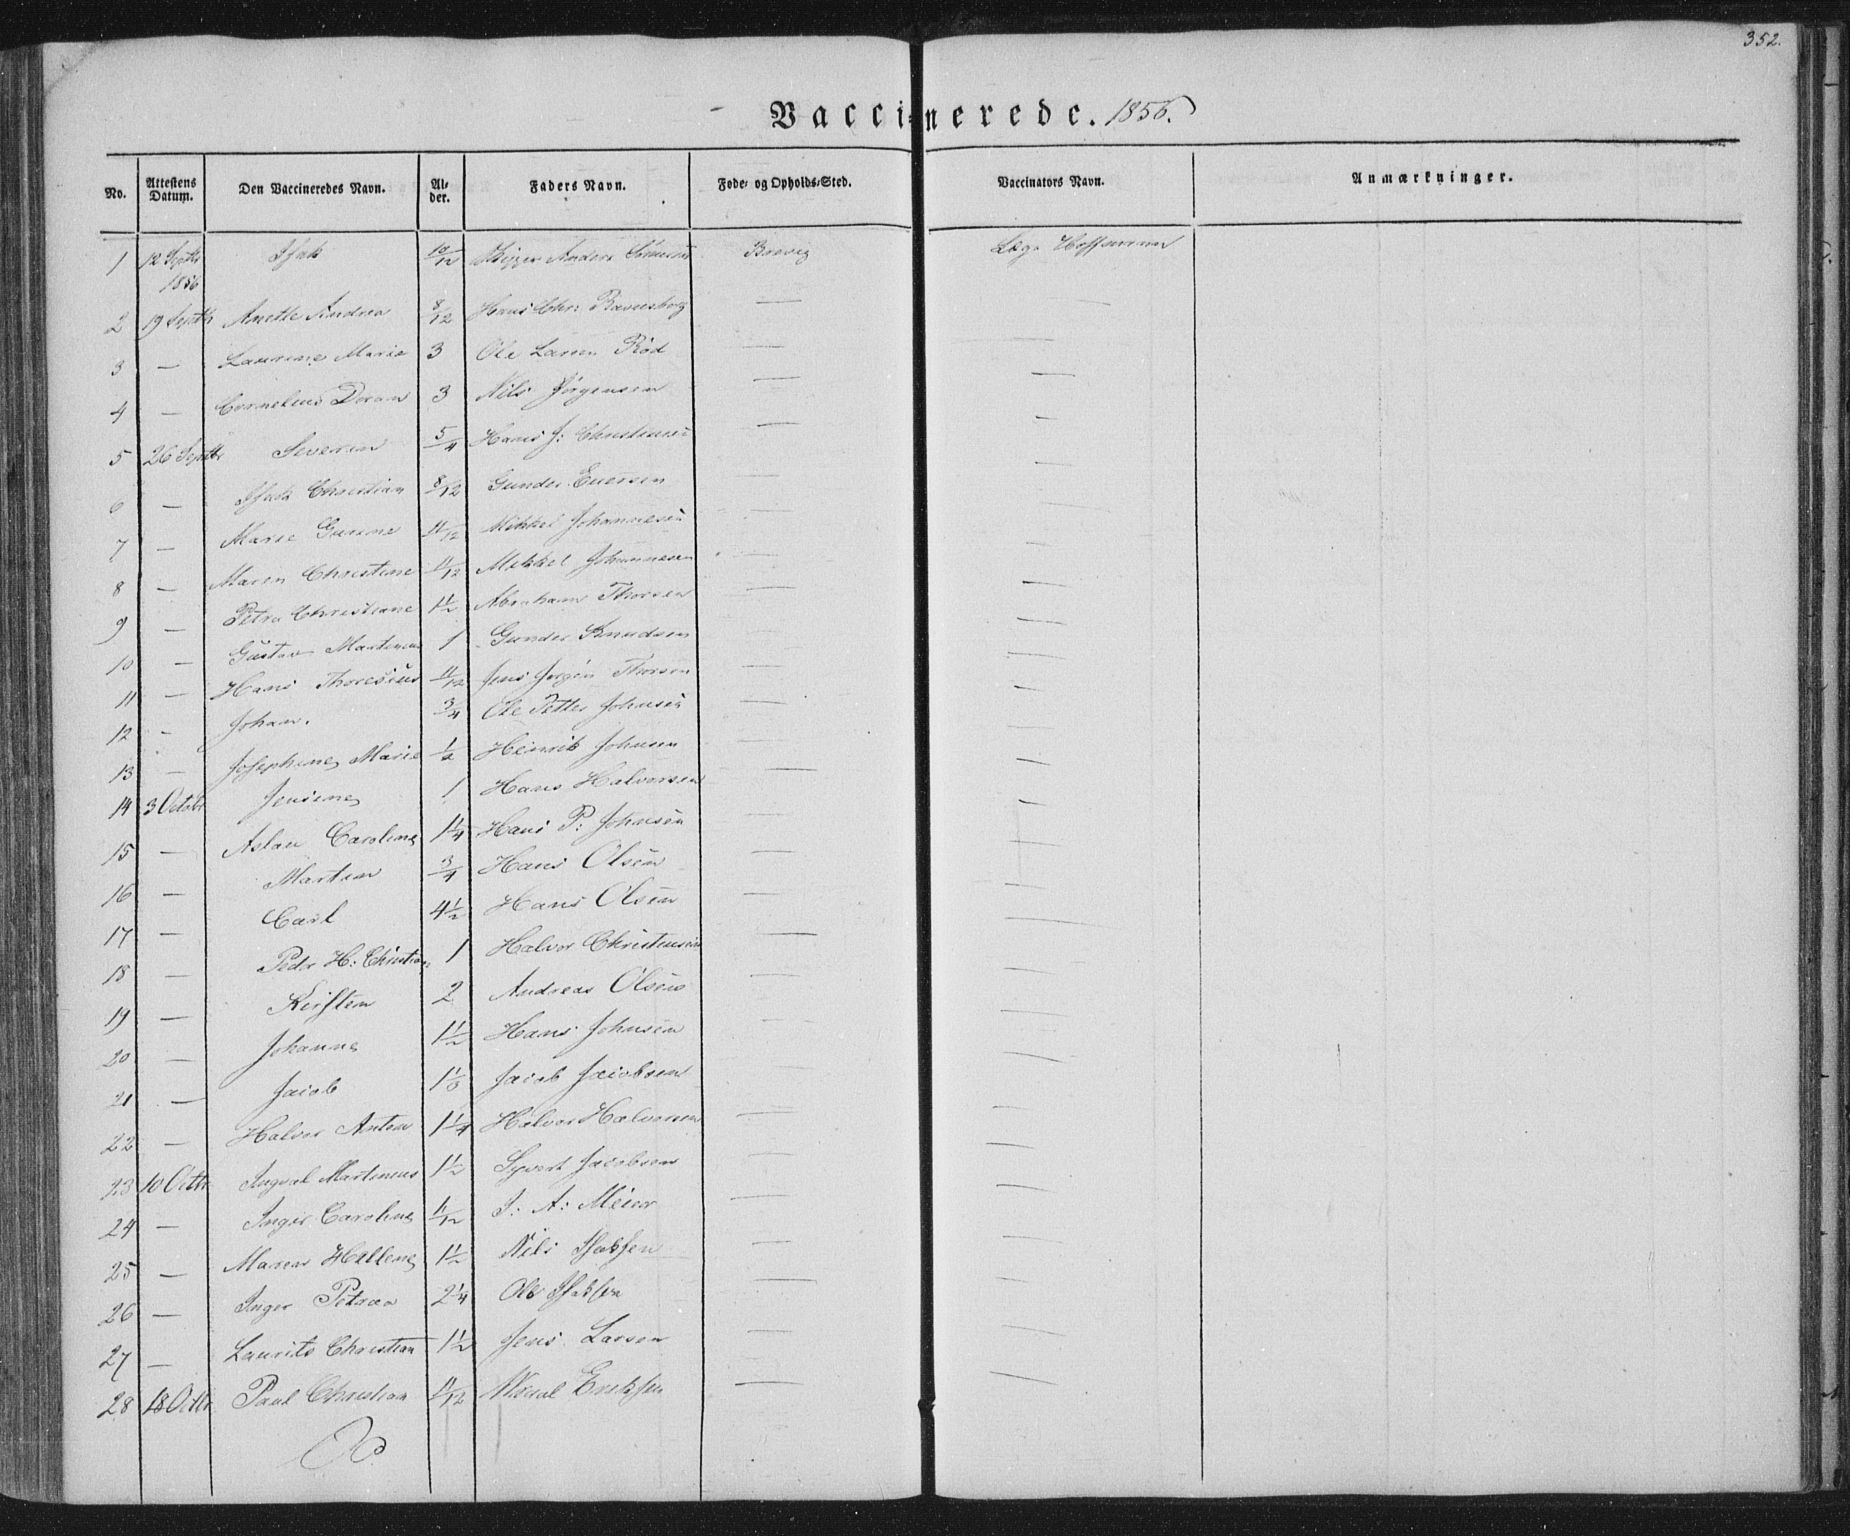 352.
Vaccinerede. 1856.
No. Attestens Datum. Den Vaccineredes Navn. Alder. Faders Navn. Føde- og Opholds-Sted. Vaccinators Navn. Anmærkninger.
1 12 Septbr 1856 Isak 10/12 Anders Brevig Læge Hoffmann
2 19 Septbr Anette Andrea 8/12 Hans Chr: Ravnsborg —
3 — Laurine Marie 3 Ole Larsen Rød — —
4 — Cornelius 3 Nils Jørgensen — —
5 26 Septbr Severin 5/4 Hans J: Christensen — —
6 — Isak Christian 8/12 Gunder Evensen — —
7 — Marie Gurine 11/12 Mikkel Johannesen — —
8 — Maren Christine 11/12 Mikkel Johannesen — —
9 — Petra Christiane 1 1/2 Abraham Thorsen — —
10 — Gustav Martinius 1 Gunder Knudsen — —
11 — Hans Thoresius 11/12 Jens Jørgen Thorsen — —
12 — Johan. 3/4 Ole Petter Johnsen — —
13 — Josephine Marie Henrik Johnsen — —
14 3 Octobr Jensine 1 Hans Halvorsen — —
15 — Aslau Caroline 1 1/4 Hans P: Johnsen — —
16 — Martin 3/4 Hans Olsen — —
17 — Carl 4 1/2 Hans Olsen — —
18 — Peder H: Christian 1 Halvor Christensen — —
19 — Kirsten 2 Andreas Olsen — —
20 — Johanne 1 1/2 Hans Johnsen — —
21 — Jacob Jacob Jacobsen — —
22 — Halvor Anton 1 1/4 Halvor Halvorsen — —
23 10 Octbr Ingval Martinius 1 1/2 Syvert Jacobsen — —
24 — Inger Caroline 11/12 S: A: Meier — —
25 — Maren Hellene 1 1/2 Nils Isaksen — —
26 — Inger Petrea 2 1/4 Ole Isaksen — —
27 — Laurits Christian 1 1/2 Jens Larsen — —
28 18 Octbr Paul Christian 11/12 Eriksen — —